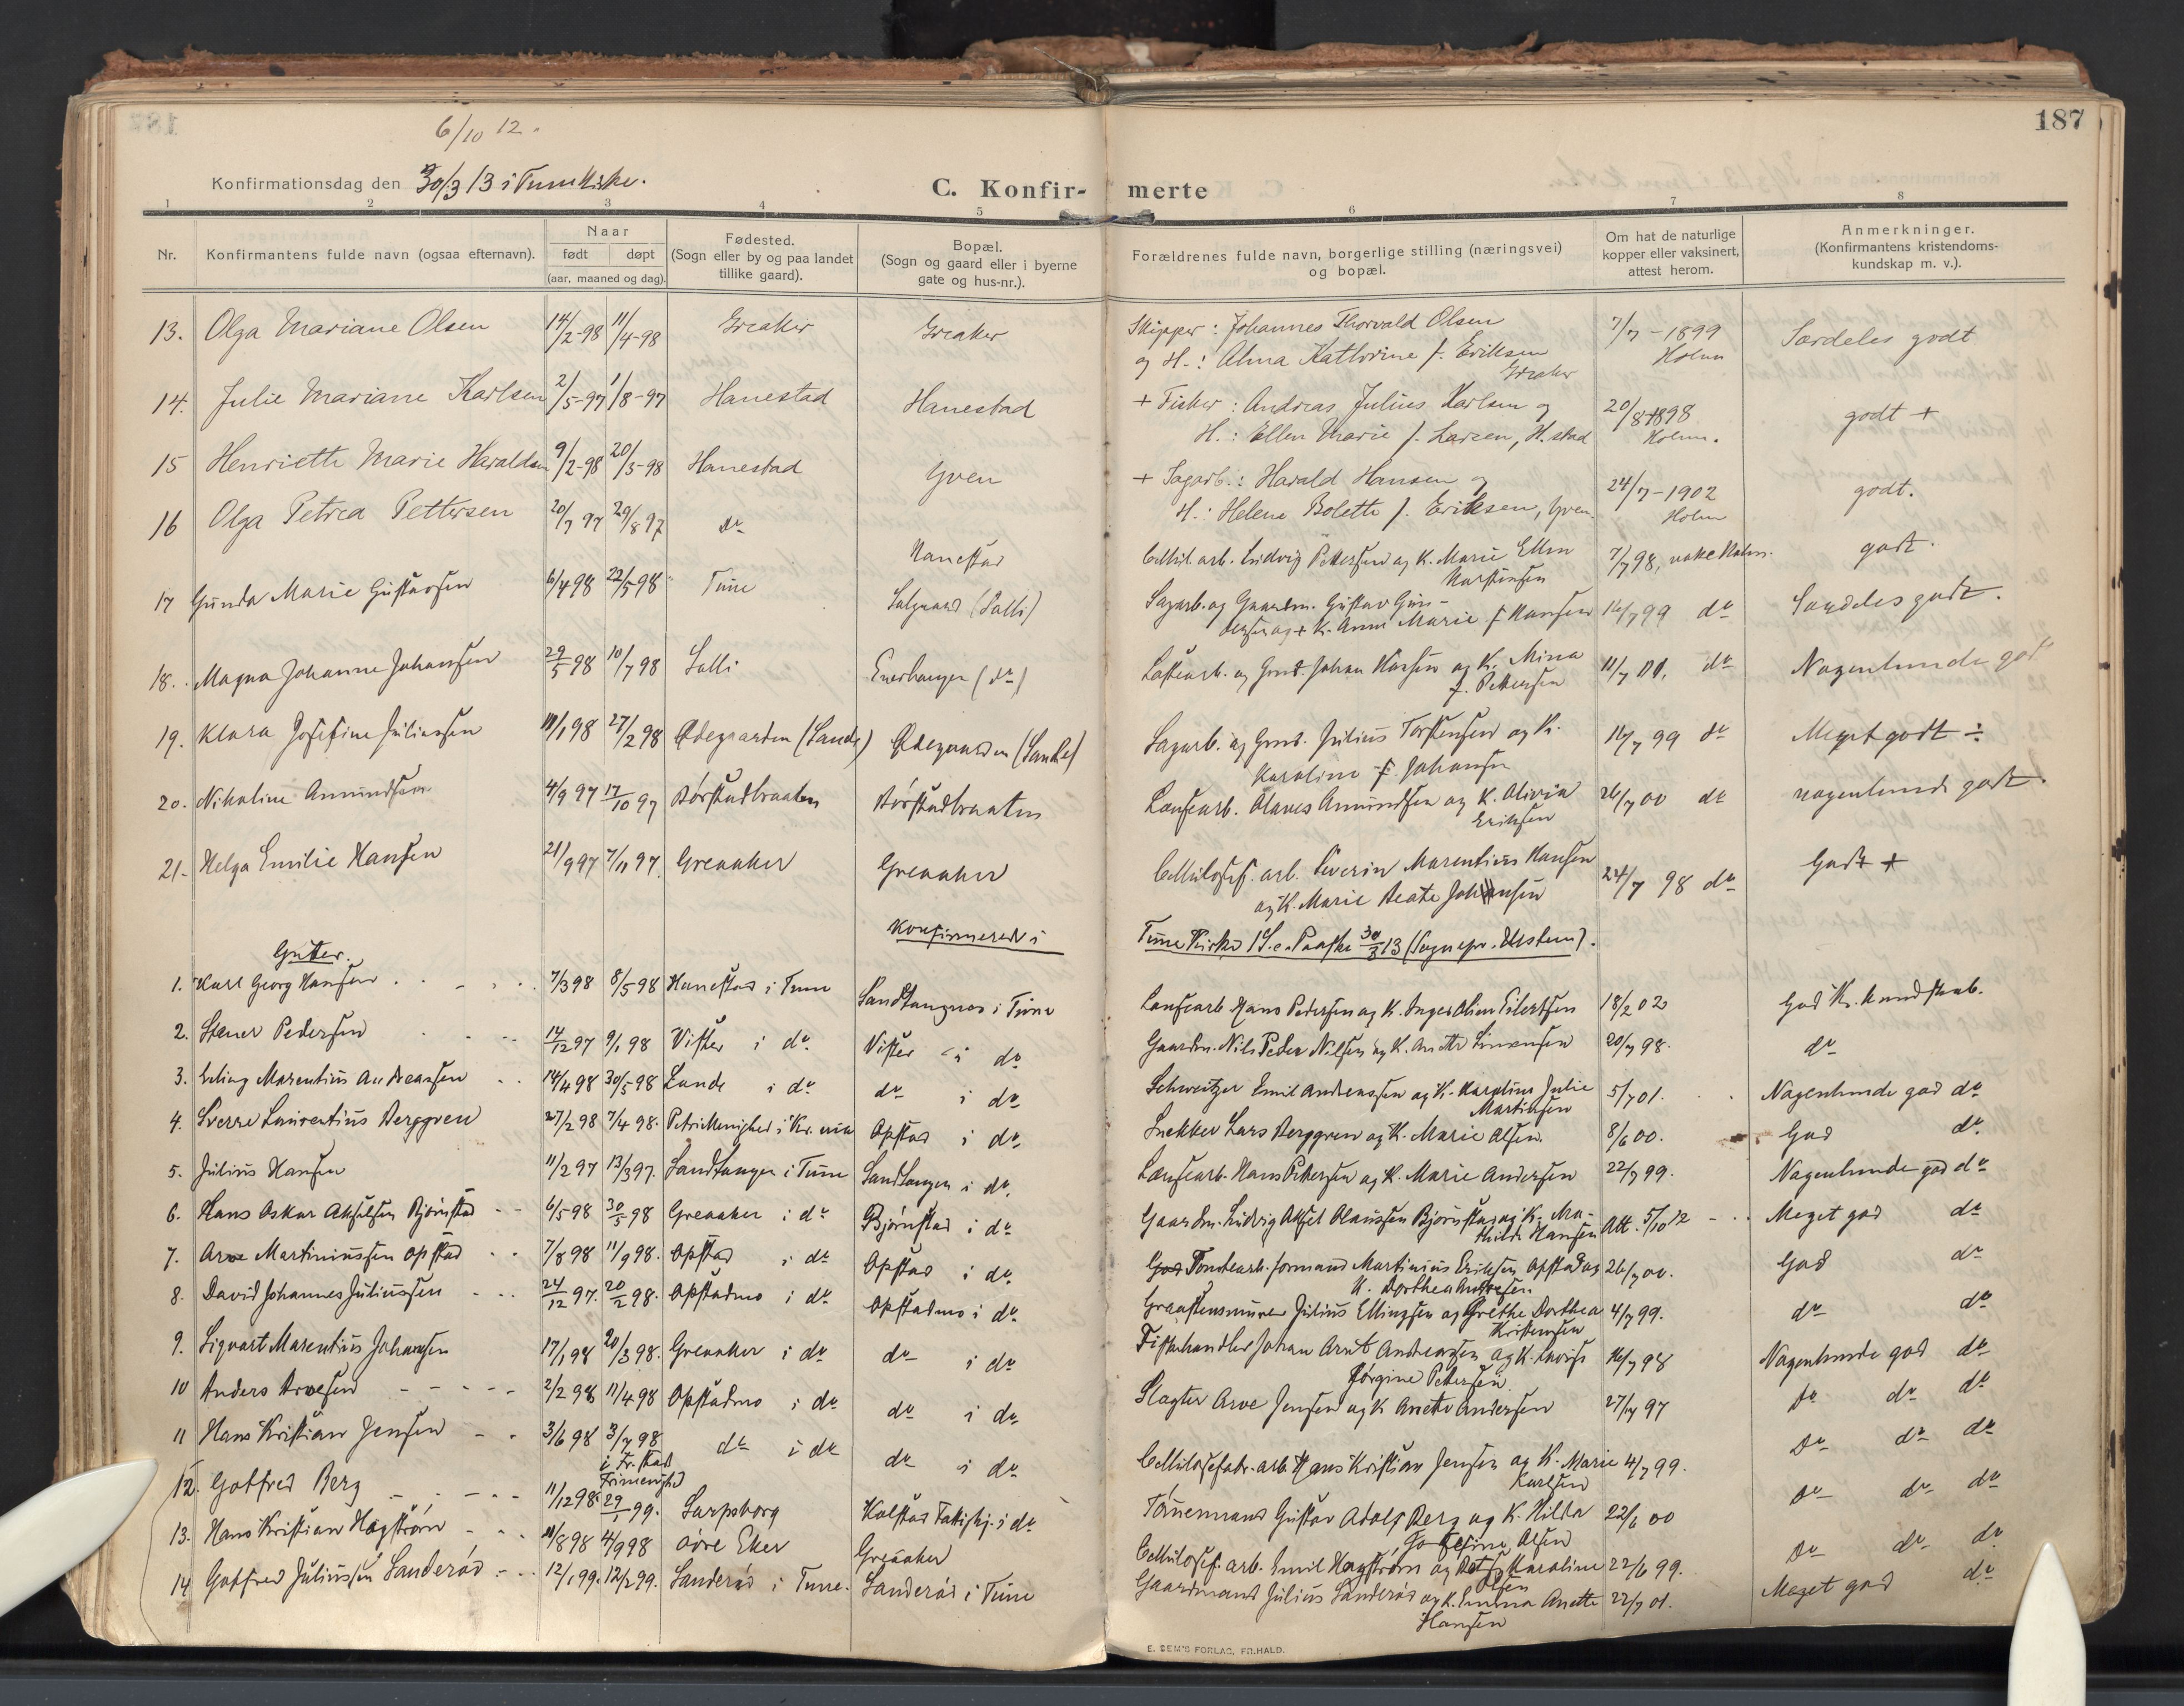 187
6/10 12.
Konfirmationsdag den 30/3 13 i Tune Kirke.
C. Konfir- merte
1 2 3 4 5 6 7 8
Nr. Konfirmantens fulde navn (ogsaa efternavn). Naar født døpt (aar, maaned og dag). Fødested. (Sogn eller by og paa landet tillike gaard). Bopæl. (Sogn og gaard eller i byerne gate og hus-nr.). Forældrenes fulde navn, borgerlige stilling (næringsvei) og bopæl. Om hat de naturlige kopper eller vaksinert, attest herom. Anmerkninger. (Konfirmantens kristendoms-kundskap m. v.).
13. Olga Mariane Olsen 14/2-98 11/4-98 Greaker Greaker Skipper: Johannes Thorvald Olsen 7/7-1899 Særdeles godt
og H.: Alma Kathrine f. Eriksen Greaker Holm
14. Julie Mariane Karlsen 2/5-97 1/8-97 Hanestad Hanestad + Fisker: Andreas Julius Karlsen og 20/8-1898 godt +
H.: Ellen Marie f. Larsen, H.stad Holm.
15 Henriette Marie Haraldsen 9/2-98 20/3-98 Hanestad Yven + Sagarb.: Harald Hansen og 24/7-1902 godt.
H.: Helene Bolette f. Eriksen, Yven. Holm
16 Olga Petrea Pettersen 20/7 97 29/8 97 Do Hanestad Cellul. arb. Ludvig Pettersen og K. Marie Ellen 7/7 98, Holm. godt.
17 Gunda Marie Gustavsen 6/4 98 22/5 98 Tune (Salli) Sagarb. og Gaardm. Gustav Gun-
dersen og + K. Anne Marie f Hansen 16/7 99 do Særdeles godt.
18. Magna Johanne Johansen 29/5 98 10/7 98 Salli Enerhaugen (do) og Johan og K. Mina
f. Pettersen 11/7 01. do Nogenlunde godt
19. Klara Josefine Juliussen 11/1 98 27/2 98 Ødegaarden (Lande) Ødegaarden (Lande) Sagarb. og Julius Torstensen og K.
Karoline f. Johansen 16/7 99 do Meget godt ÷
20. Nikoline Amundsen 4/9 97 17/10 97 Børstadbraaten Børstadbraaten Løsearb. Olaves Amundsen og K. Olivia
Eriksen 26/7 00 do nogenlunde godt.
21. Helga Emilie Hansen 21/9 97 7/11 97. Greaaker Greaaker Cellulosef. arb. Severin Marentius Hansen
og K. Marie Beate Johansen 24/7 98 do Godt +
Konfirmered i Tune Kirke 1 S. e. Paaske 30/3 13 (Sognepr. Ulstein).
Gutter.
1. Karl Georg Hansen 7/3 98 8/5 98 Hanestad i Tune Sandtangen i Tune Løsearb Hans Pedersen og K. Inger Oline Eilertsen 18/2 02 God Kr. kundskab.
2. Stener Pedersen 14/12 97 9/1 98 Vister i do. Vister i do Gaardm. Nils Peder Nilsen og K. Anette 20/7 98. do
3. Erling Marentius Andreassen 14/4 98 30/5 98 Lande i do do i do Schweitzer Emil Andreassen og K. Karoline Julie
Martinsen 5/7 01. Nogenlunde god do
4. Sverre Laurentius Berggren 27/2 98 7/4 98. Petri Menighed i Kr. Opstad i do Snekker Lars Berggren og K. Marie Olsen. 8/6 00. God do.
5. Julius Hansen 11/2 97 13/3 97. Sandtangen i Tune Sandtangen i do. Løsearb. Hans Pettersen og K. Marie Andersen 22/7 99. Nogenlunde god do
6. Hans Oskar Akselsen Bjørnstad 6/5 98 30/5 98 Greaaker i do Bjørnstad i do Gaardm. Ludvig Aksel Olaussen Bjørnstad og K. Ma-
thilde Hansen Att. 5/10 12 Meget god do
7. Arve Martiniussen Opstad 7/8 98 11/9 98. Opstad i do Opstad i do. Tomtearb. formand Martinius Eriksen Opstad og
K. Dorthea Andresen. 26/7 00. God do
8. David Johannes Juliussen 24/12 97. 20/2 98. Opstadmo i do Opstadmo i do. Graastensmurer Julius Ellingsen og Grethe Dorthea
Kristensen 4/7 99. do do
9. Sigvart Marentius Johansen 17/1 98 20/3 98. Greaaker i do do i do Fiskehandler Johan Arnt Andreassen og K. Lovise
Jørgine Pettersen. 16/7 98 Nogenlunde god do
10 Anders Arvesen 2/2 98 11/4 98 Opstadmo i do do i do Slagter Arve Jensen og K Anette Andersen 27/7 97 Do do do
11 Hans Kristian Jensen 3/6 98 3/7 98 do i do do i do Cellulosefabr. arb. Hans Kristian Jensen og K. Marie
Karlsen 4/7 99. Do do do
i Fr.stad Frimenighed
12. Gotfred Berg 11/12 98 29/1 99. Sarpsborg Kalstad Fattighj. i do Tømmermand Gustav Adolf Berg og K. Hilda
Josefine Olsen 22/6 00 Do do do
13. Hans Kristian Hagstrøm 11/8 98 4/9 98 Øvre Eker Greaaker Cellulosef. arb. Emil Hagstrøm og Karoline
Olsen 22/6 99. Do do do.
14 Gotfred Juliussen Sanderød 12/1 99. 12/2 99. Sanderød i Tune. Sanderød i Tune Gaardmand Julius Sanderød og K. Emma Anette
Hansen 22/7 01. Meget god do
E. SEM'S FORLAG, FR.HALD.